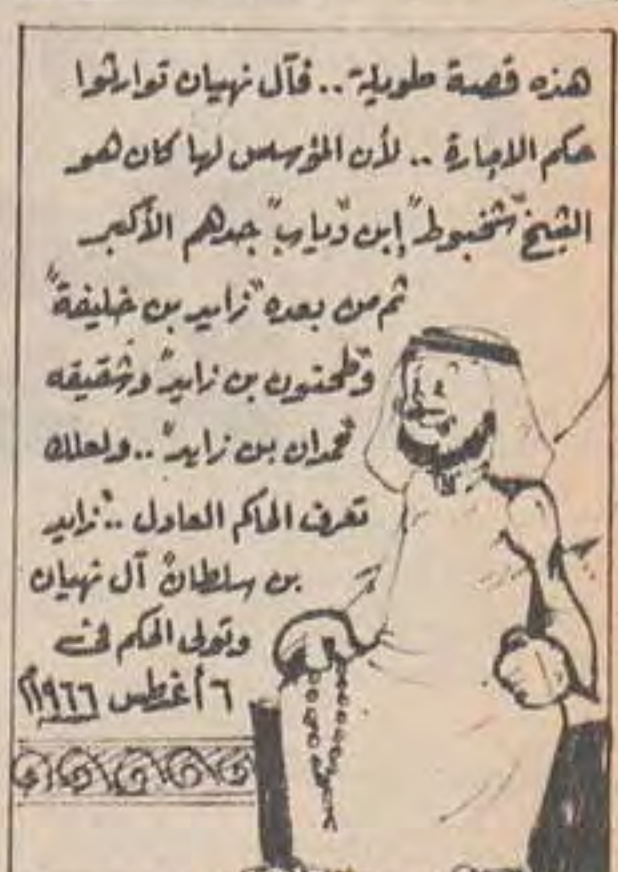 هذه قصة طويلة .. فآل نهيان توارثوا
حكم الامارة .. لأن المؤسس لها كان هو
الشيخ "شخبوط" إبن "دياب" جدهم الأكبر
ثم من بعده "زايد بن خليفة"
و"طحنون بن زايد" وشقيقه
"حمدان بن زايد" .. ولعلك
تعرف الحاكم العادل .. "زايد
بن سلطان" آل نهيان
وتولى الحكم في
٦ أغسطس ١٩٦٦م